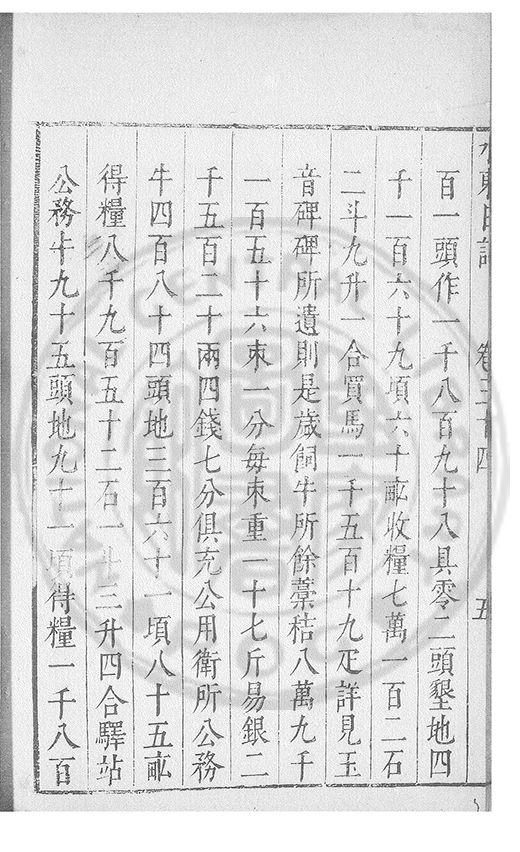 水東日記 卷三十四 五
百一頭作一千八百九十八具零二頭墾地四
千一百六十九頃六十畝收糧七萬一百二石
二斗九升一合買馬一千五百十九疋詳見玉
音碑碑所遺則是歲飼牛所餘藁秸八萬九千
一百五十六束一分每束重一十七斤易銀二
千五百二十兩四錢七分俱充公用衛所公務
牛四百八十四頭地三百六十一頃八十五畝
得糧八千九百五十二石一斗三升四合驛站
公務牛九十五頭地九十一頃得糧一千八百